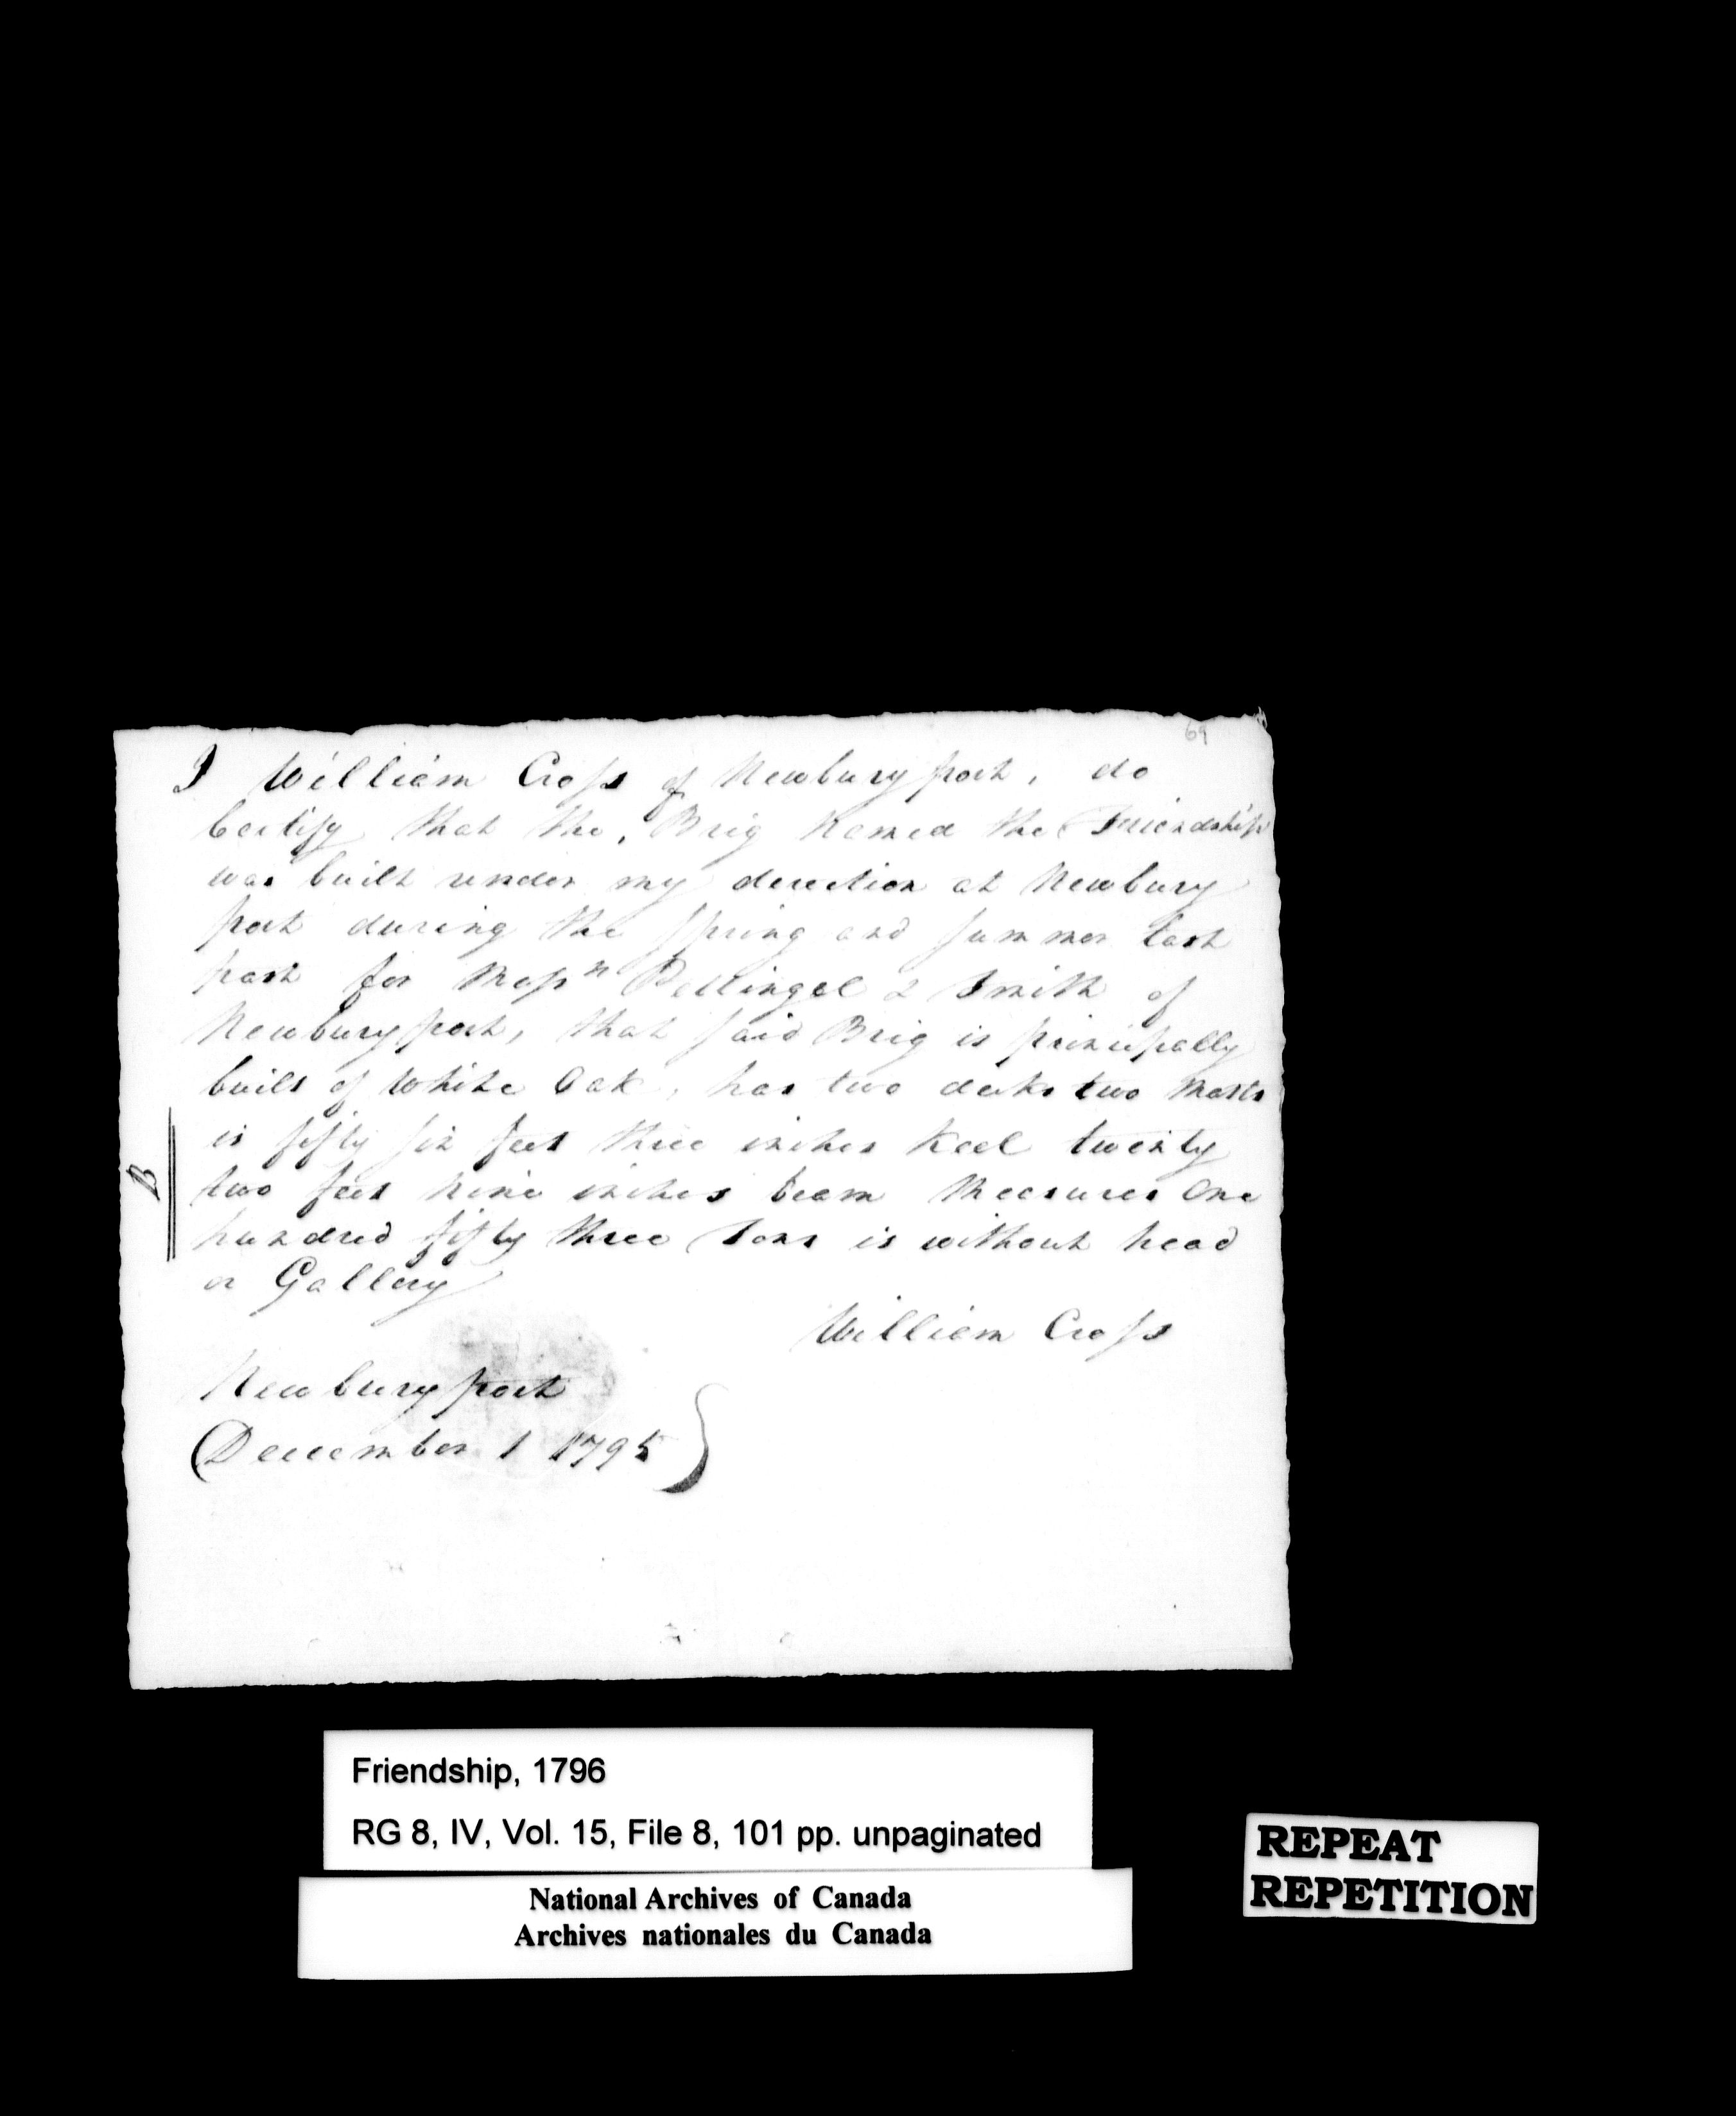 69
I William Cross of Newbury port, do
Certify that the, Brig Named the Friendship
was built under my derection at Newbury
port during the Spring and Summer last
past for Messrs Pettingel & Smith of
Newbury port, that said Brig is principally
built of White Oak, has two decks two Masts
is fifty six feet three inches Keel twenty
two feet Nine inches beam Measures One
hundred fifty three Tons is without head
or Gallery
B
William Cross
Newbury port
December 1 1795
Friendship, 1796
RG 8, IV, Vol. 15, File 8, 101 pp. unpaginated
National Archives of Canada
Archives nationales du Canada
REPEAT
REPETITION